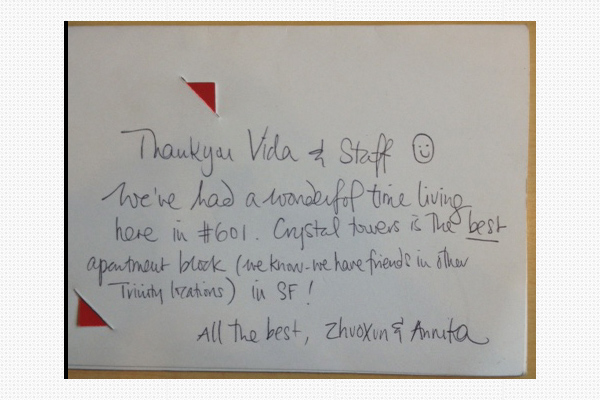 Thankyou Vida & Staff ☺
We've had a wonderful time living
here in #601. Crystal towers is the best
apartment block (we know-we have friends in other
Trinity locations) in SF!
All the best, Zhuoxun & Annita